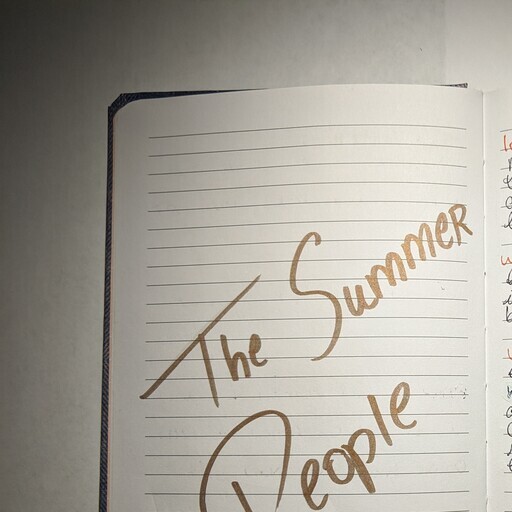 The Summer
People